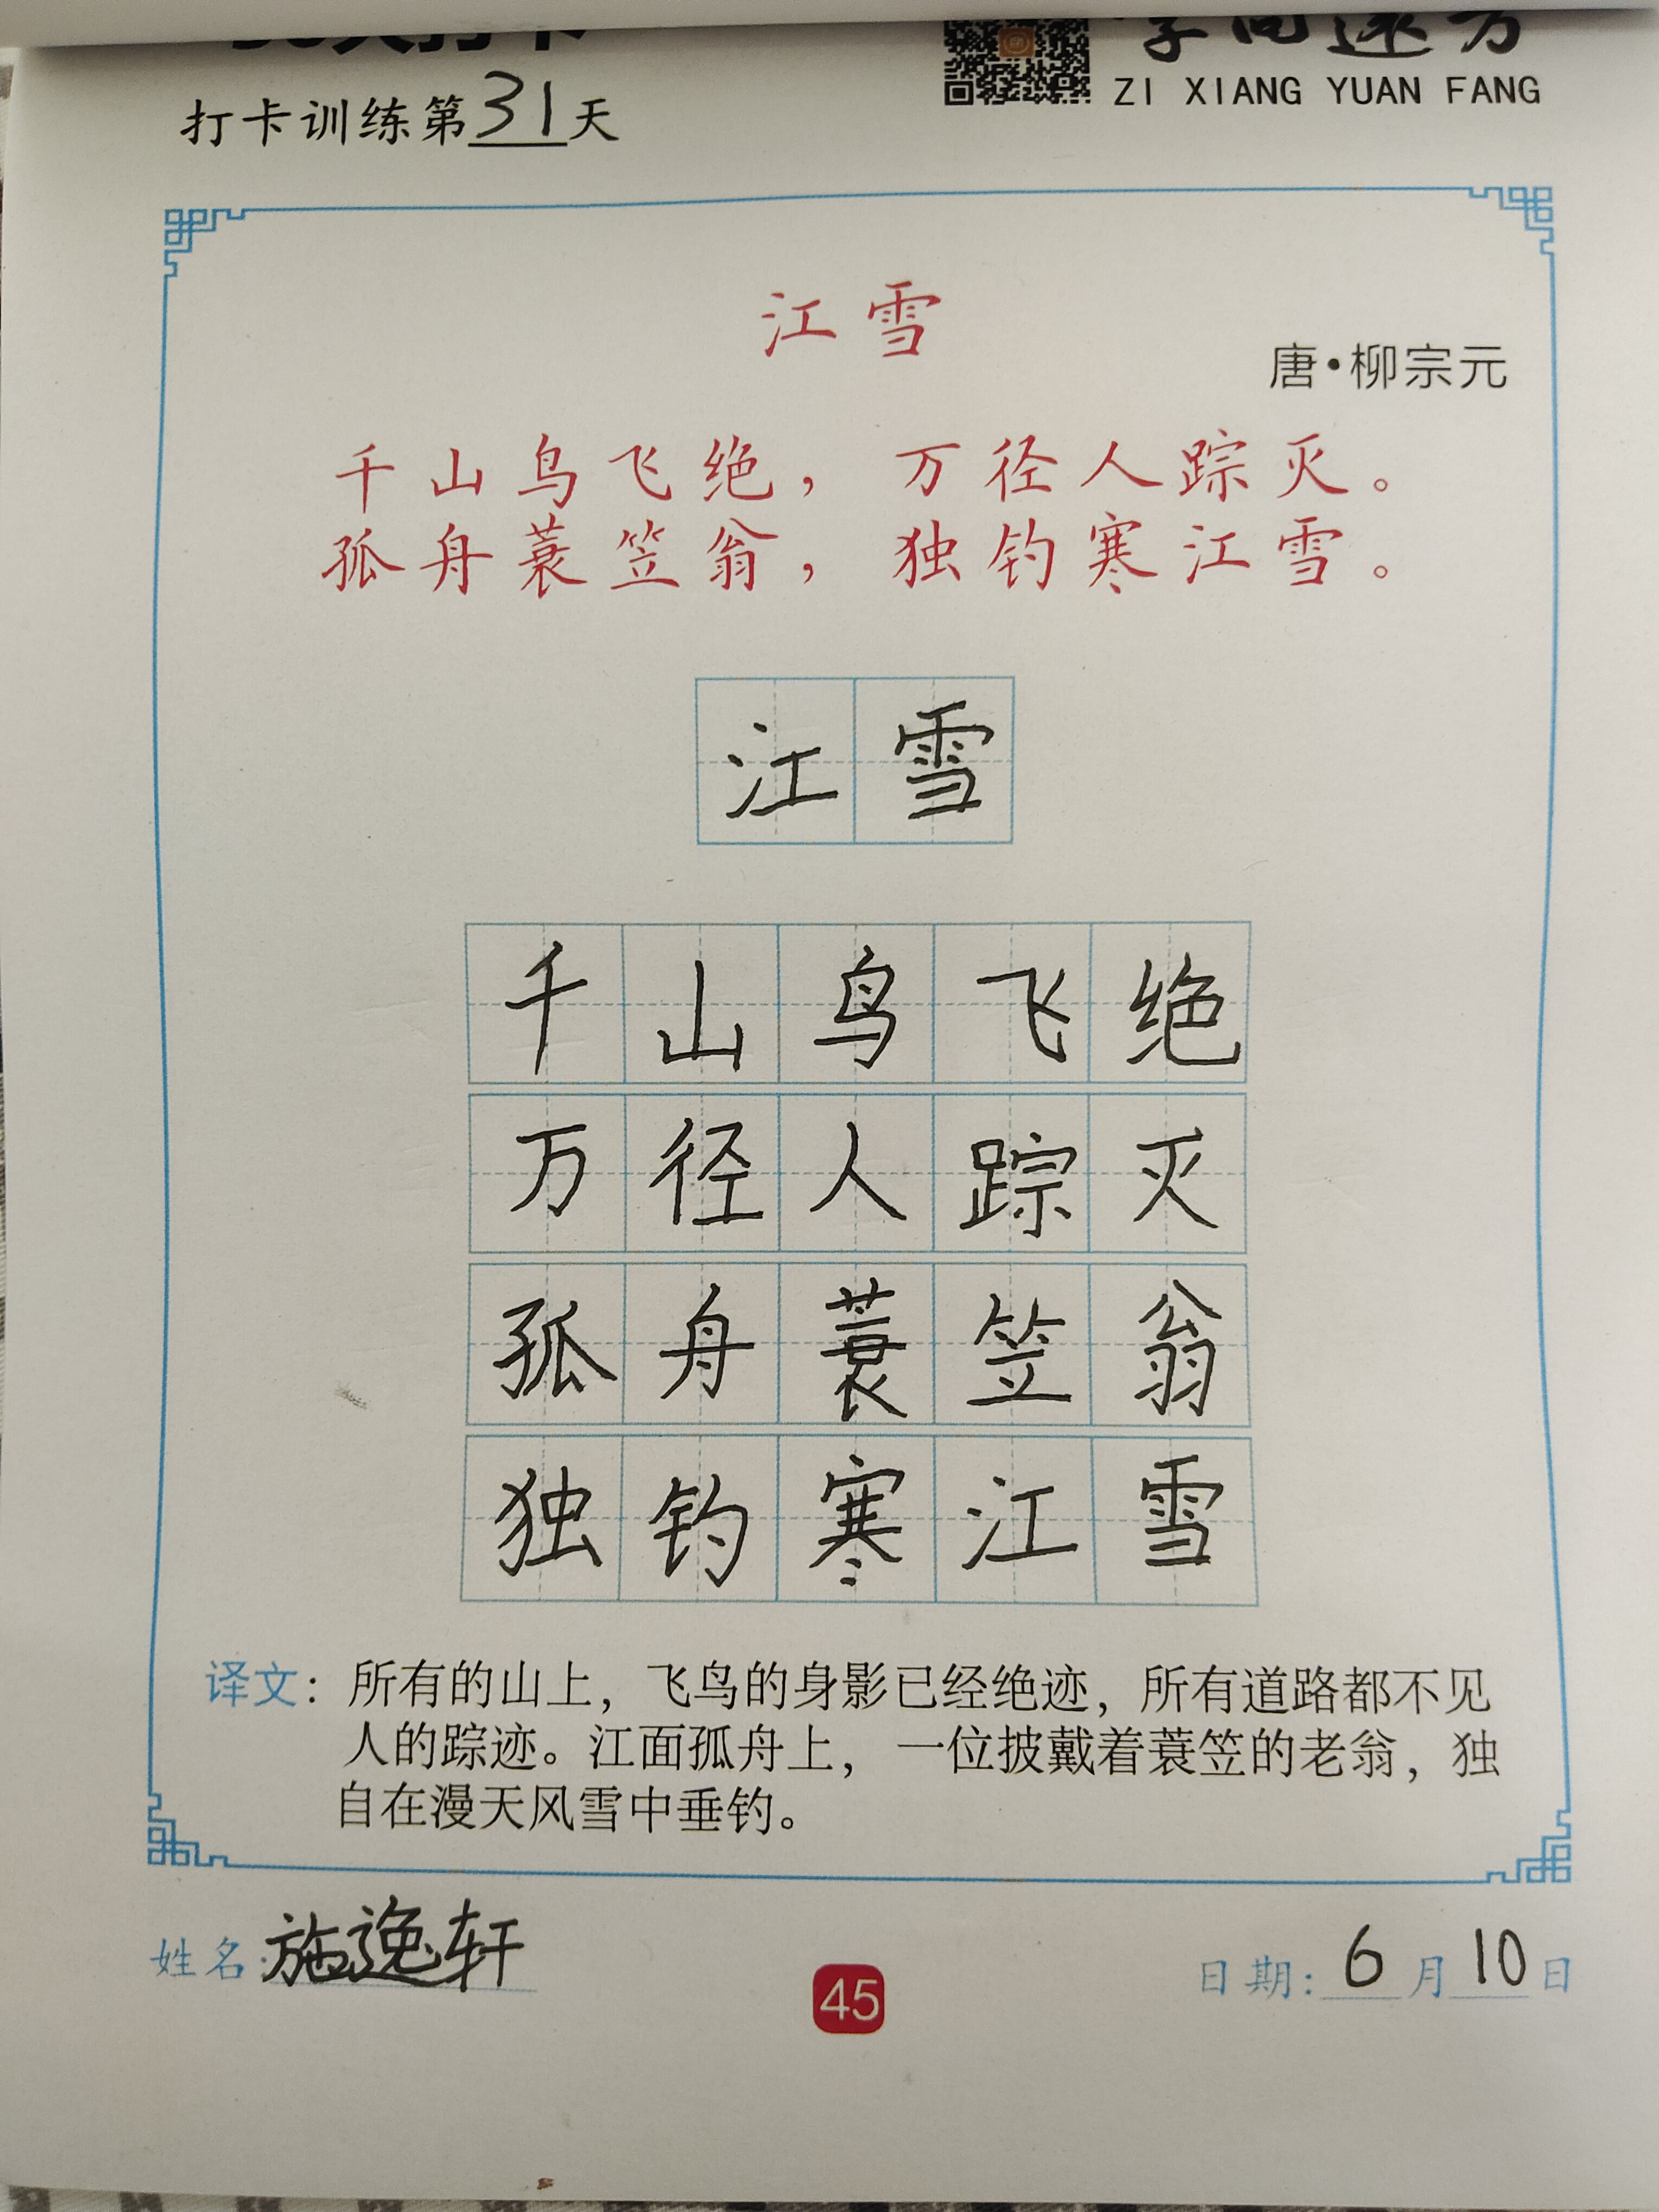 打卡训练第31天
ZI XIANG YUAN FANG
江雪
唐·柳宗元
千山鸟飞绝，万径人踪灭。
孤舟蓑笠翁，独钓寒江雪。
江雪
千山鸟飞绝
万径人踪灭
孤舟蓑笠翁
独钓寒江雪
译文：所有的山上，飞鸟的身影已经绝迹，所有道路都不见
人的踪迹。江面孤舟上，一位披戴着蓑笠的老翁，独
自在漫天风雪中垂钓。
姓名：施逸轩
45
日期：6月10日